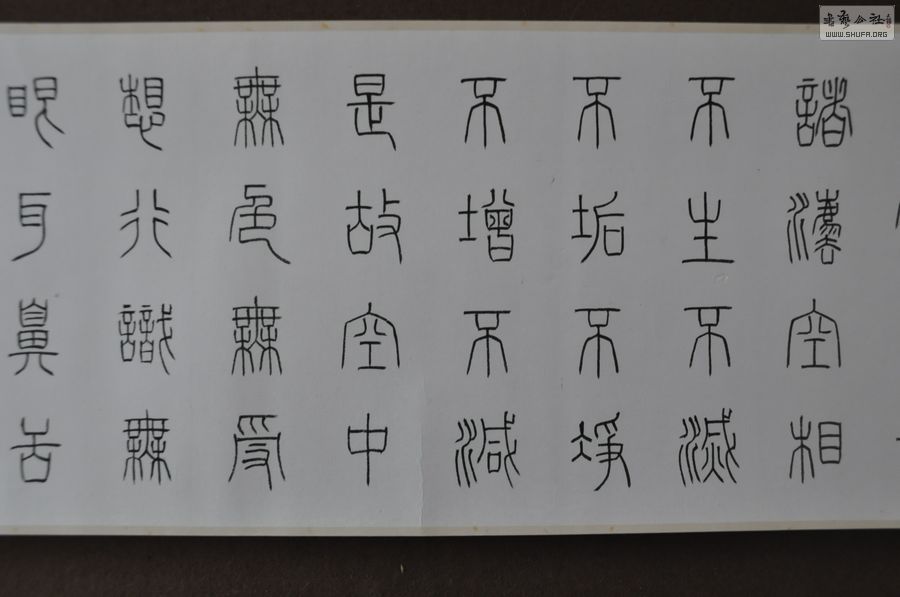 諸灋空相
不生不滅
不垢不竫
不增不減
是故空中
無色無受
想行識無
眼耳鼻舌
書藝公社
WWW.SHUFA.ORG